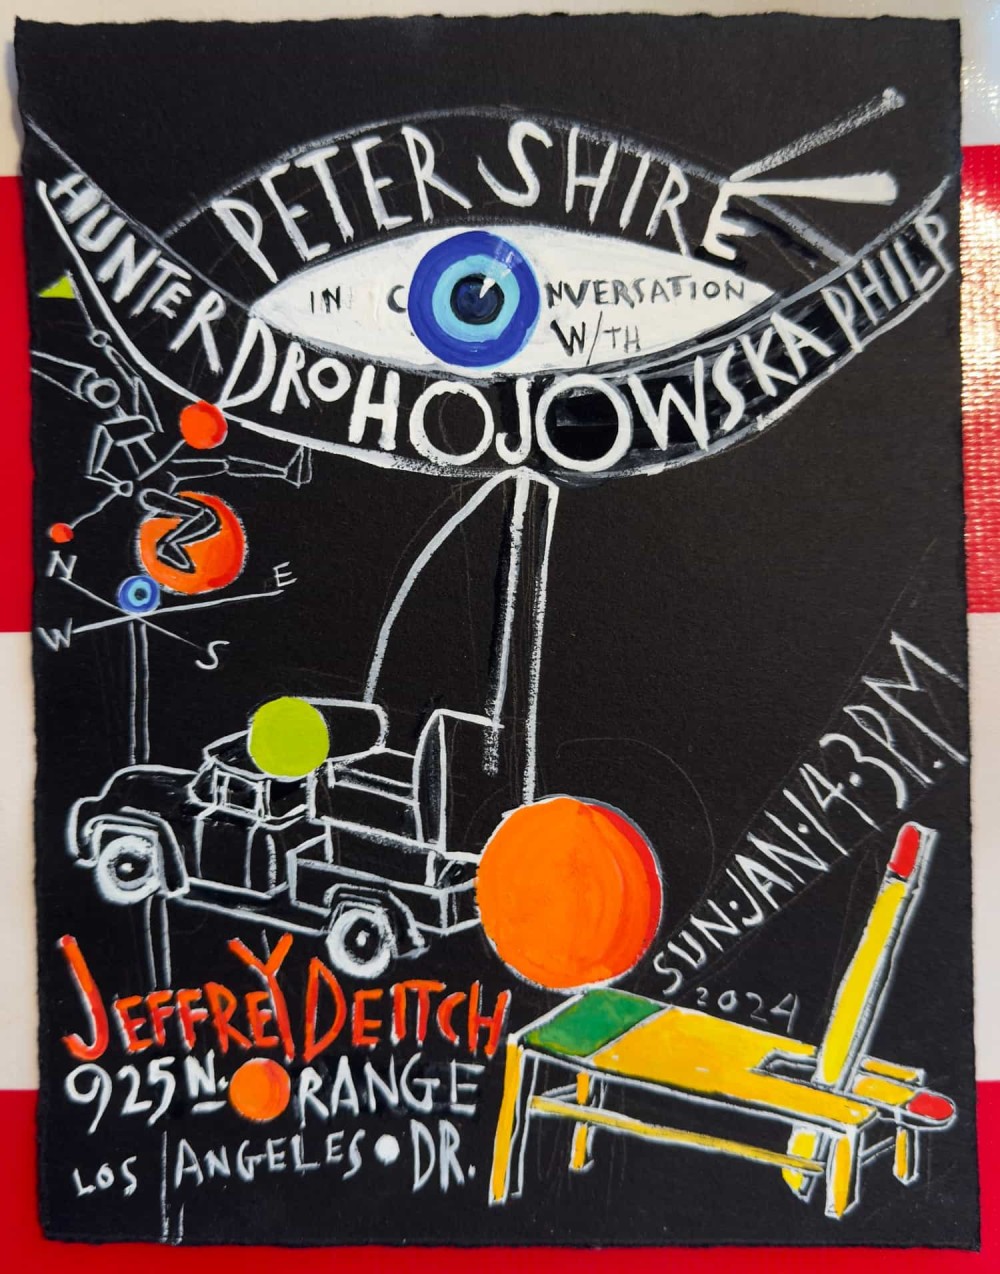 PETER SHIRE
IN CONVERSATION
WITH
HUNTER DROHOJOWSKA PHILP
N
E
W
S
SUN·JAN·14·3P.M.
2024
JEFFREY DEITCH
925 N. ORANGE
LOS ANGELES • DR.